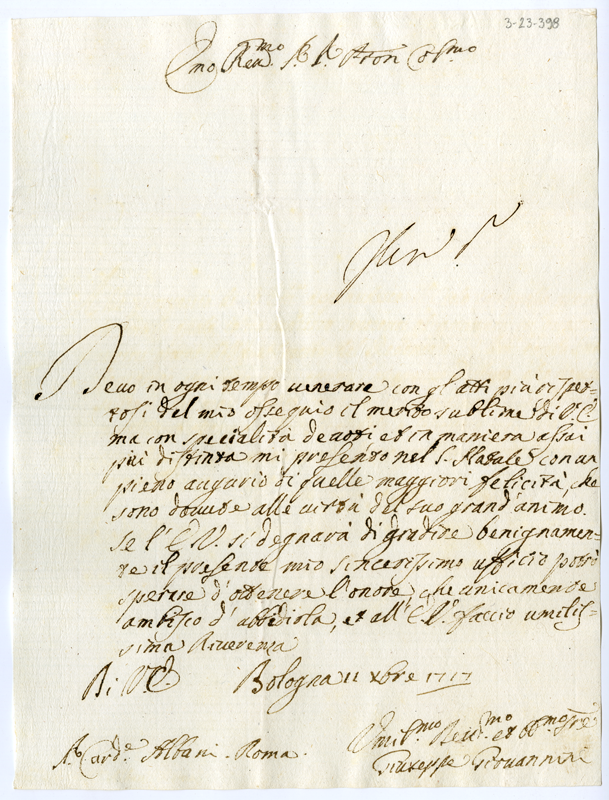 3-23-398
Emo Reu.mo S.r P.ron Col.mo
Deuo in ogni tempo uenerare con gl'atti più rispet-
tosi del mio ossequio il merito sublime di V.E.
ma con specialità deuoti et in maniera assai
più distinta mi presento nel S. Natale con un
pieno augurio di quelle maggiori felicità, che
sono douute alle uirtù del suo grand'animo.
se l'E.V. si degnarà di gradire benignamen-
te il presente mio sincerissimo ufficio potrò
sperare d'ottenere l'onore, che unicamente
ambisco d'ubbidirla, et all'E.V. faccio umilis-
sima Riuerenza
Di V.E. Bologna 11 Xbre 1717
S.r Card.e Albani Roma.
Umil.mo Deu.mo et Ob.mo Sre
Giuseppe Giouannini